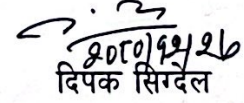 २०८०।१२।२७
दिपक सिग्देल